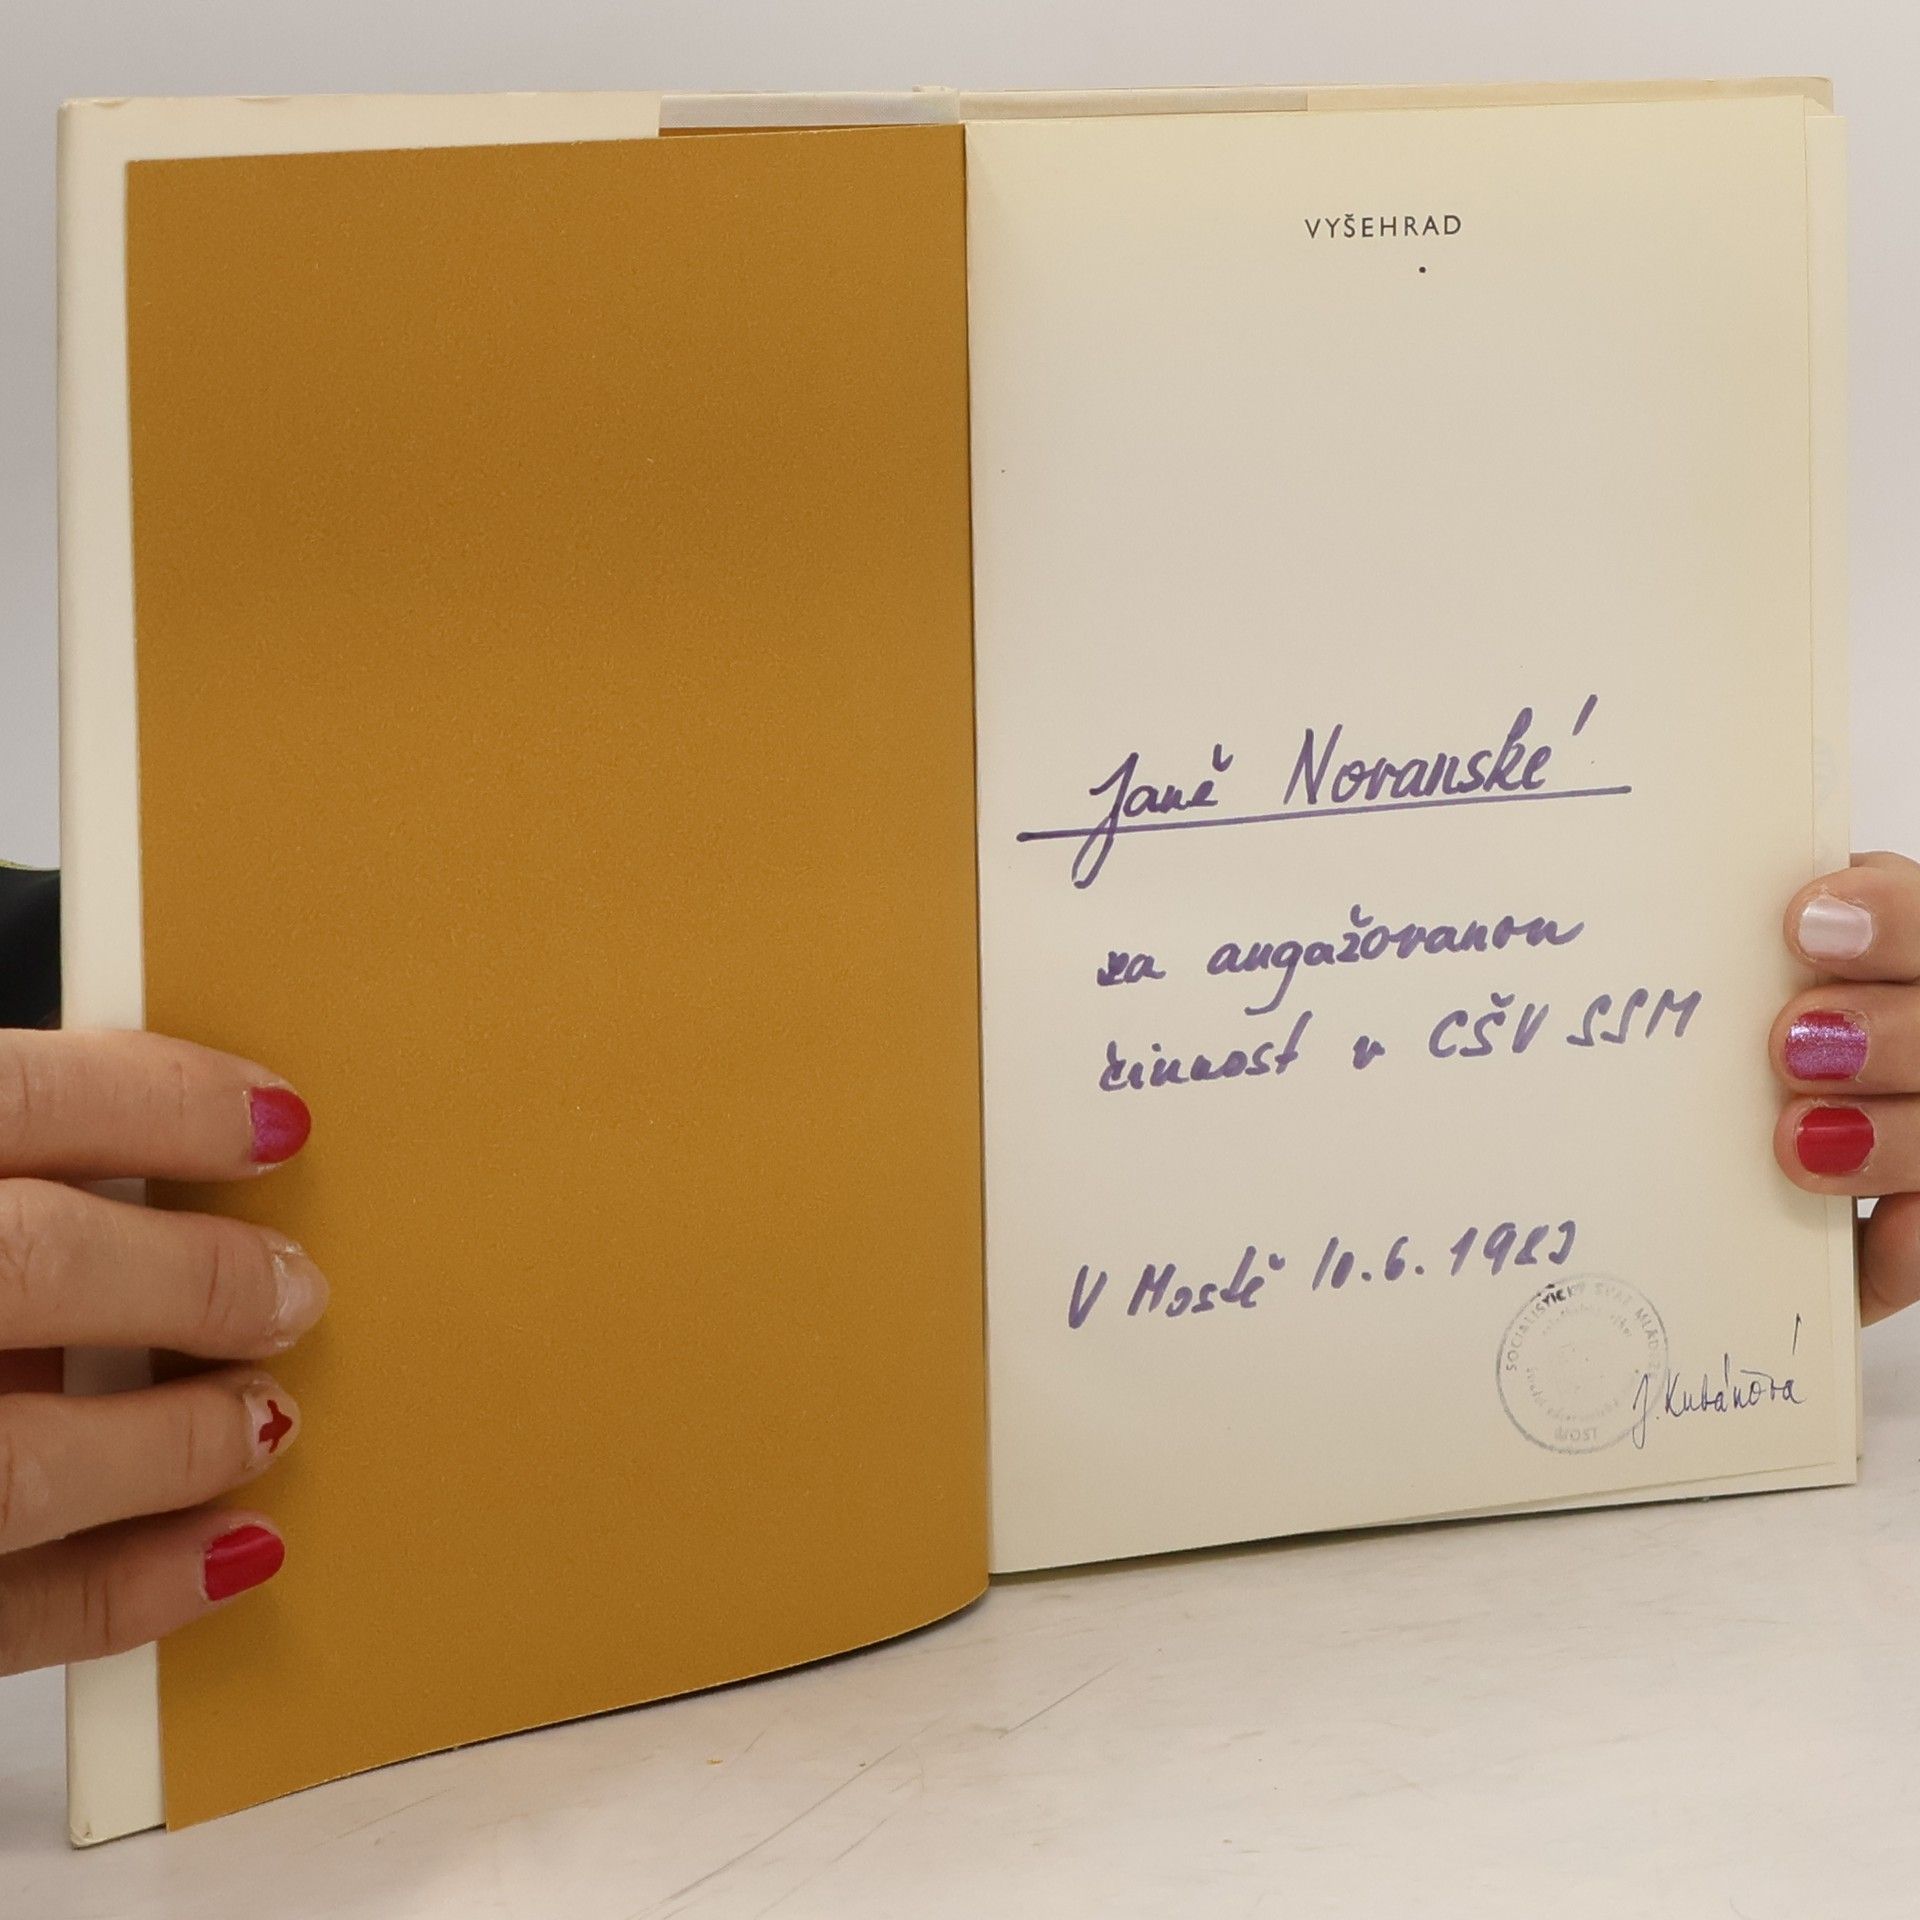 VYŠEHRAD
Janě Novanské
za angažovanou
činnost v CŠV SSM
V Mostě 10.6.1983
SOCIALISTICKÝ SVAZ MLÁDEŽE
MOST
J. Kubánová